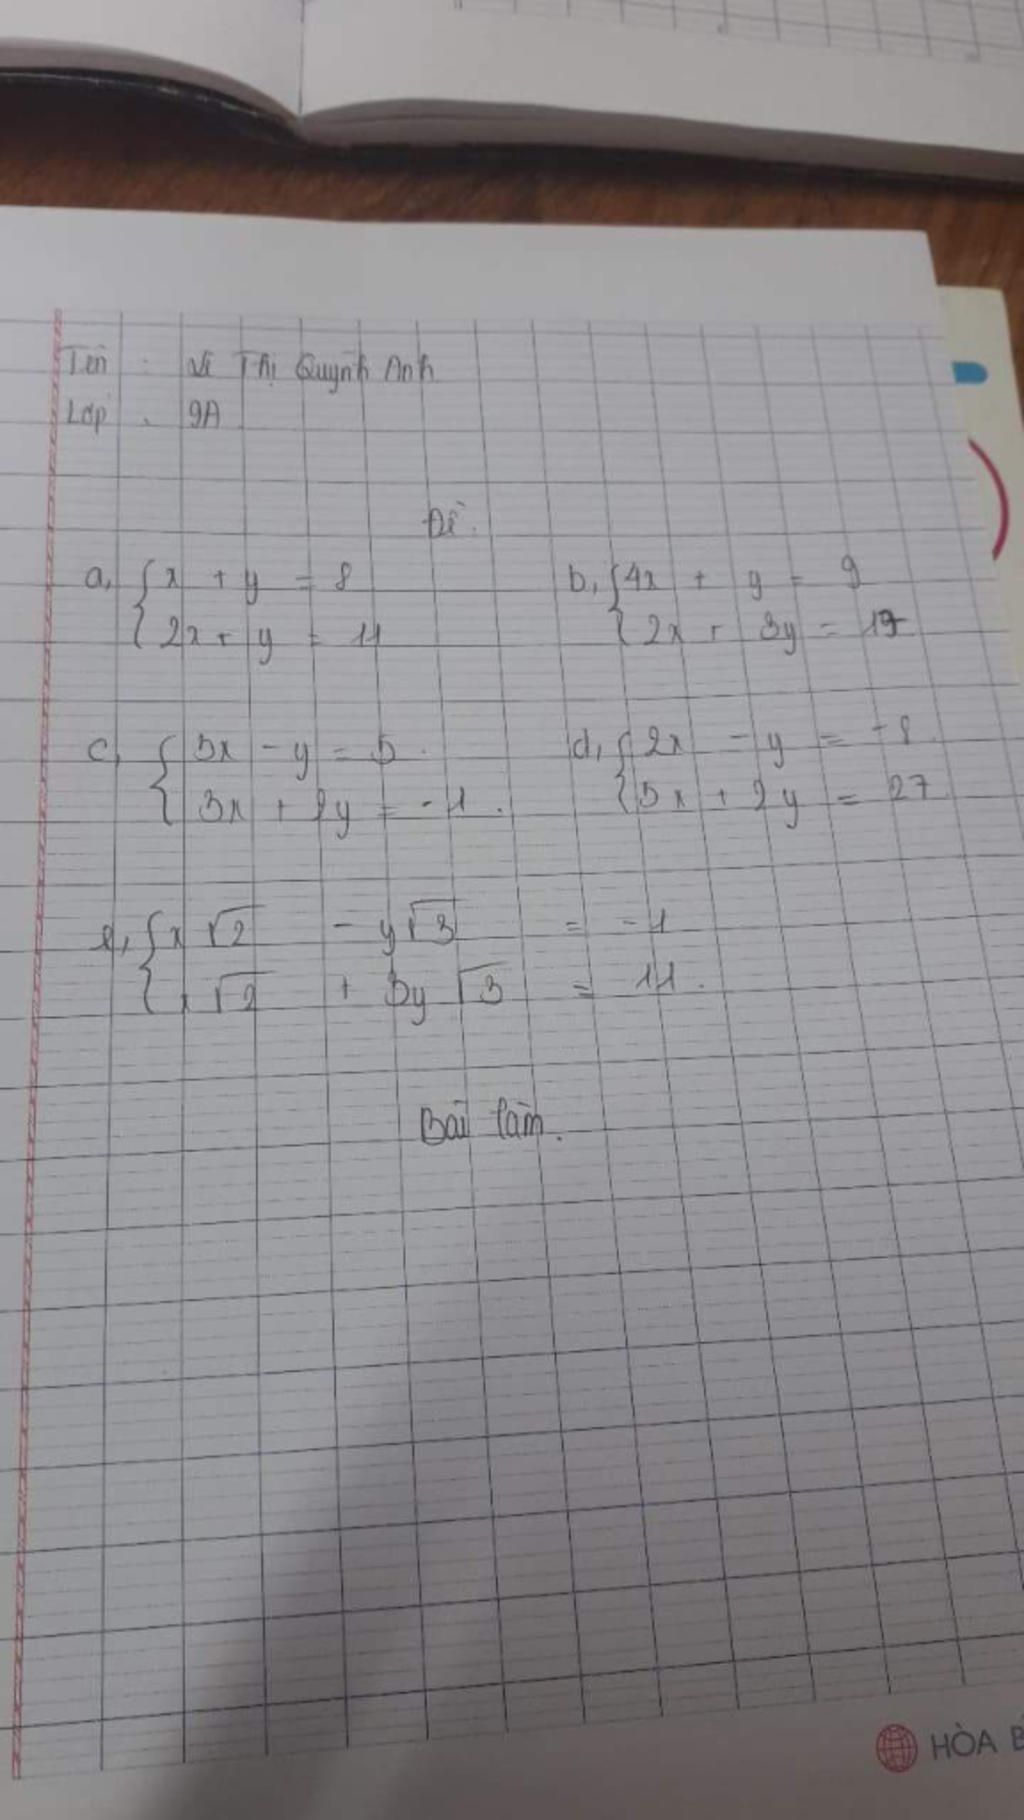 Tên : Vi Thị Quỳnh Anh
Lớp : 9A
Đề.
a, { x + y = 8 b, { 4x + y = 9
2x + y = 11 2x + 3y = 17
c, { 5x - y = 5 . d, { 2x - y = -8
3x + 2y = -1 . 5x + 2y = 27
e, { x √2 - y √3 = -1
x √2 + 3y √3 = 11 .
Bài làm.
HÒA B